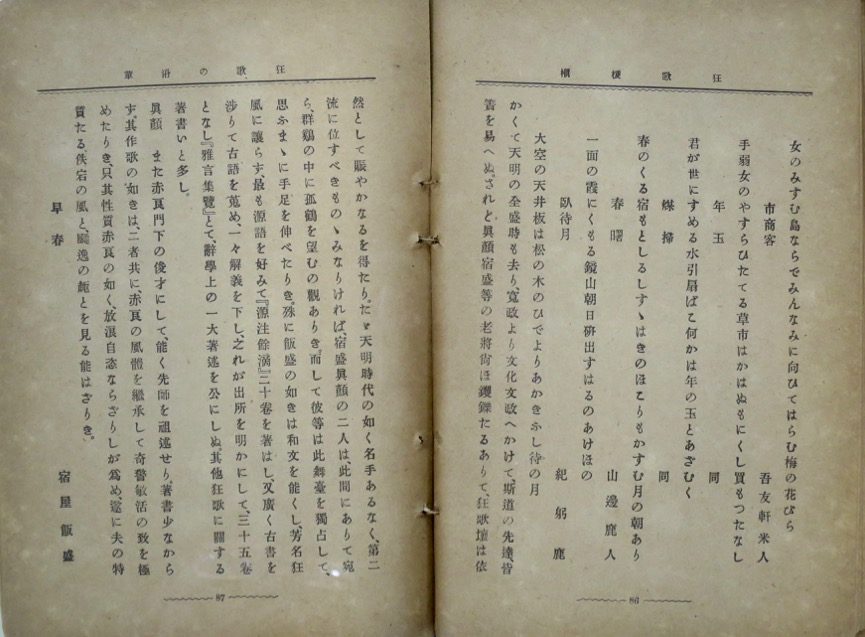 狂歌梗概
女のみすむ島ならでみんなみに向ひてはらむ梅の花びら
市商客
吾友軒米人
手弱女のやすらひたてる草市はかはぬもにくし買もつたなし
年玉
同
君が世にすめる水引扇ばこ何かは年の玉とあざむく
煤掃
同
春のくる宿もとしるしすゝはきのほこりもかすむ月の朝あり
春曙
山邊鹿人
一面の霞にくもる鏡山朝日硏出すはるのあけほの
臥待月
紀躬鹿
大空の天井板は松の木のひでよりあかきふし待の月
かくて天明の全盛時も去り、寬政より文化文政へかけて、斯道の先達、皆
簀を易へぬ。されど眞顔宿盛等の老將尙ほ矍鑠たるありて、狂歌壇は依
86
狂歌の沿革
然として賑やかなるを得たり。たゞ天明時代の如く名手あるなく、第二
流に位すべきものゝみなりければ、宿盛眞顔の二人は此間にありて宛
ら、群鷄の中に孤鶴を望むの觀ありき而して彼等は此舞臺を獨占して、
思ふまゝに手足を伸べたりき。殊に飯盛の如きは和文を能くし、芳名狂
風に讓らず、最も源語を好みて『源注餘滴』二十卷を著はし、又廣く古書を
涉りて古語を蒐め、一々解義を下し、之れが出所を明かにして、三十五卷
となし『雅言集覽』とて、辭學上の一大著述を公にしぬ、其他狂歌に關する
著書いと多し。
眞顔 また赤良門下の俊才にして、能く先師を祖述せり、著書少なから
す。其作歌の如きは、二者共に、赤良の風體を繼承して奇警敏活の致を極
めたりき、只其性質赤良の如く、放浪自恣ならざりしが爲め、遂に夫の特
質たる、佚宕の風と、飄逸の趣とを見る能はざりき。
早春
宿屋飯盛
87